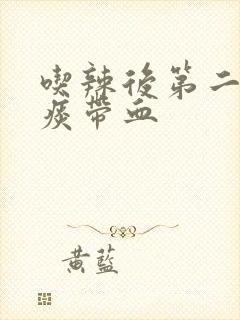 喫辣後第二
痰帶血
黃藍